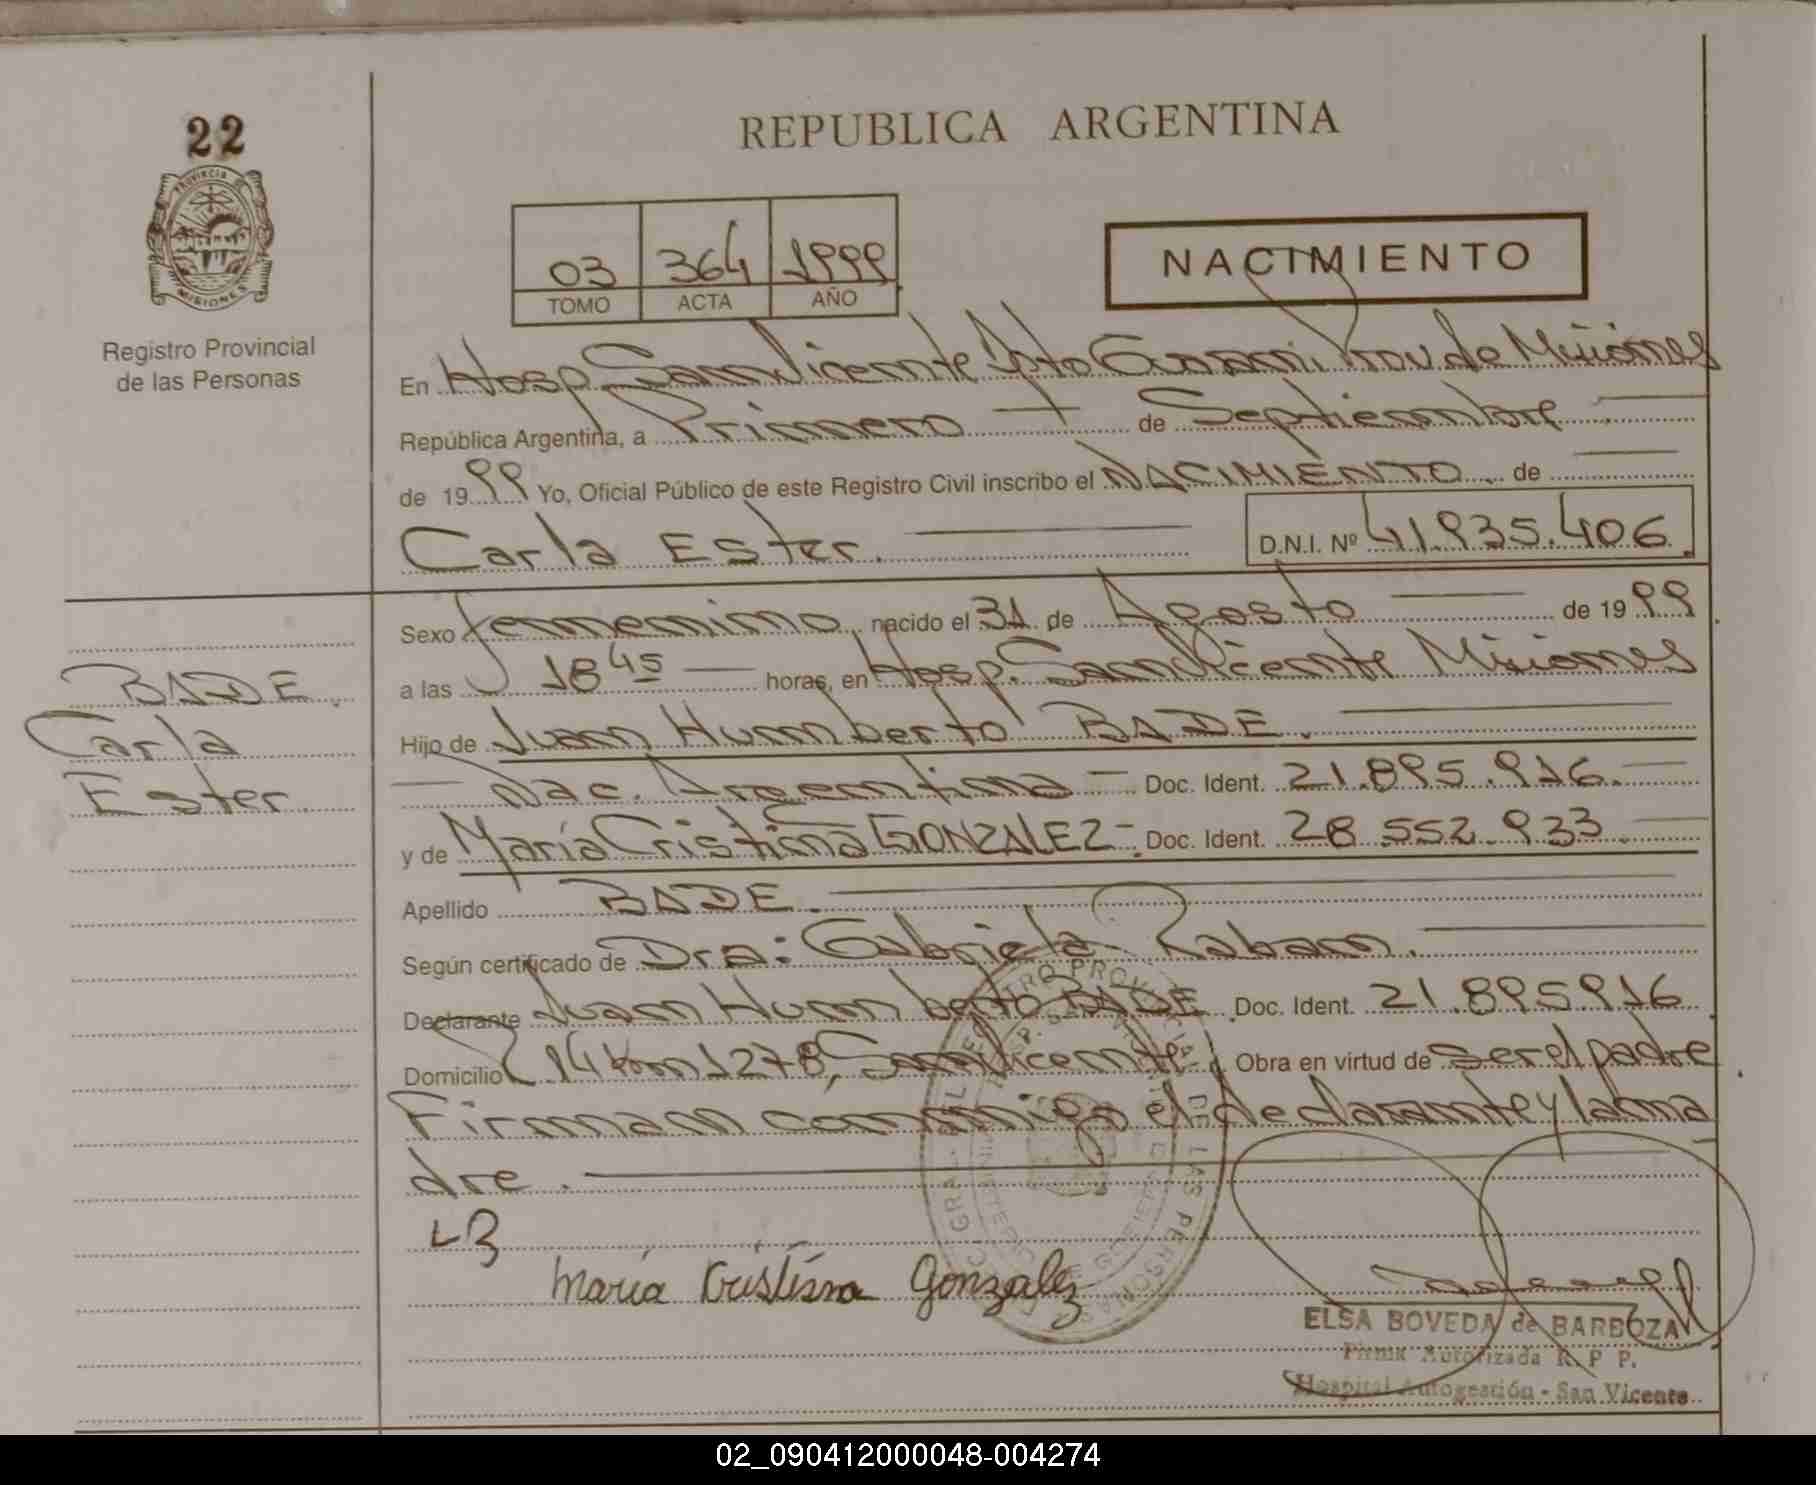 22
REPUBLICA ARGENTINA
PROVINCIA
MISIONES
Registro Provincial
de las Personas
03 364 1999
TOMO ACTA AÑO
NACIMIENTO
En Hosp. San Vicente Dpto Guarani, Prov de Misiones
República Argentina, a Primero de Septiembre
de 1999 Yo, Oficial Público de este Registro Civil inscribo el NACIMIENTO de
Carla Ester. D.N.I. Nº 41.935.406.
Sexo femenino, nacido el 31 de Agosto de 1999
a las 18 45 horas, en Hosp. San Vicente Misiones
BADE
Carla
Ester
Hijo de Juan Humberto BADE.
Nac. Argentina Doc. Ident. 21.895.916.
y de María Cristina GONZALEZ Doc. Ident. 28.552.933
Apellido BADE.
Según certificado de Dra: Gabriela
Declarante Juan Humberto BADE Doc. Ident. 21.895916
Domicilio 14 km 1278, San Vicente Obra en virtud de ser el padre
Firman conmigo el declarante y la ma
dre.
LB
María Cristina Gonzalez
ELSA BOVEDA de BARBOZA
Firma Autorizada R. P. P.
Hospital Autogestión - San Vicente
02_090412000048-004274